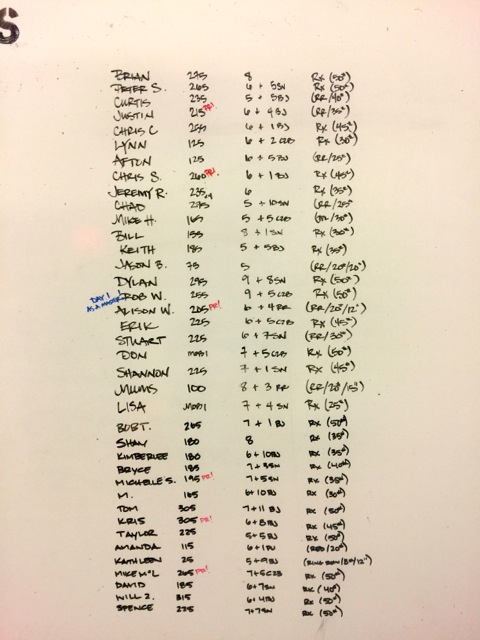 S
BRIAN 275 8 Rx (50#)
PETER S. 265 6 + 5SN Rx (50#)
CURTIS 235 5 + 5BJ (RR/40#)
JUSTIN 215 PR! 6 + 4BJ (RR/35#)
CHRIS C 255 6 + 1BJ Rx (45#)
LYNN 125 6 + 2 C2B Rx (30#)
AFTON 125 6 + 5BJ (RR/25#)
CHRIS S. 260 PR! 6 + 1BJ Rx (45#)
JEREMY R. 235 6 Rx (35#)
CHAD 275 5 + 10SN (RR/25#
MIKE H. 165 5 + 5C2B /30#)
BILL 155 8 + 1SN Rx (30#)
KEITH 185 5 + 5BJ Rx (35#)
JASON B. 75 5 (RR/20#/20")
DYLAN 295 9 + 8SN Rx (50#)
DAY 1 AS A MASTER! ROB W. 255 9 + 5C2B Rx (50#)
ALISON W. 205 PR! 6 + 4RR (RR/20#/12")
ERIK 225 6 + 5C2B Rx (45#)
STUART 225 6 + 7SN (RR/30#)
DON MOBI 7 + 5C2B Rx (50#)
SHANNON 225 7 + 1SN Rx (45#)
MUMS 100 8 + 3 RR (RR/20#/15#)
LISA MOBI 7 + 4SN Rx (25#)
BOB T. 265 7 + 1 BJ Rx (50#)
SHAY 180 8 Rx (35#)
KIMBERLEE 180 6+10BJ Rx (35#)
BRYCE 185 Rx (40#)
MICHELLE S. 195 PR! 7+5SN Rx (35#)
M. 165 6+10BJ Rx (30#)
TOM 305 7+11 BJ Rx (50#)
KRIS 305 PR! 6+8BJ Rx (45#)
TAYLOR 225 5+5BJ Rx (50#)
AMANDA 115 6+1BJ (RED/20#)
KATHLEEN 25 5+9BJ (RING ROW/8#/12")
MIKE McL 265 PR! 7+5C2B Rx (50#)
DAVID 185 6+7SN Rx (40#)
WILL Z. 315 6+4BJ Rx (50#)
SPENCE 225 7+7SN Rx (50#)